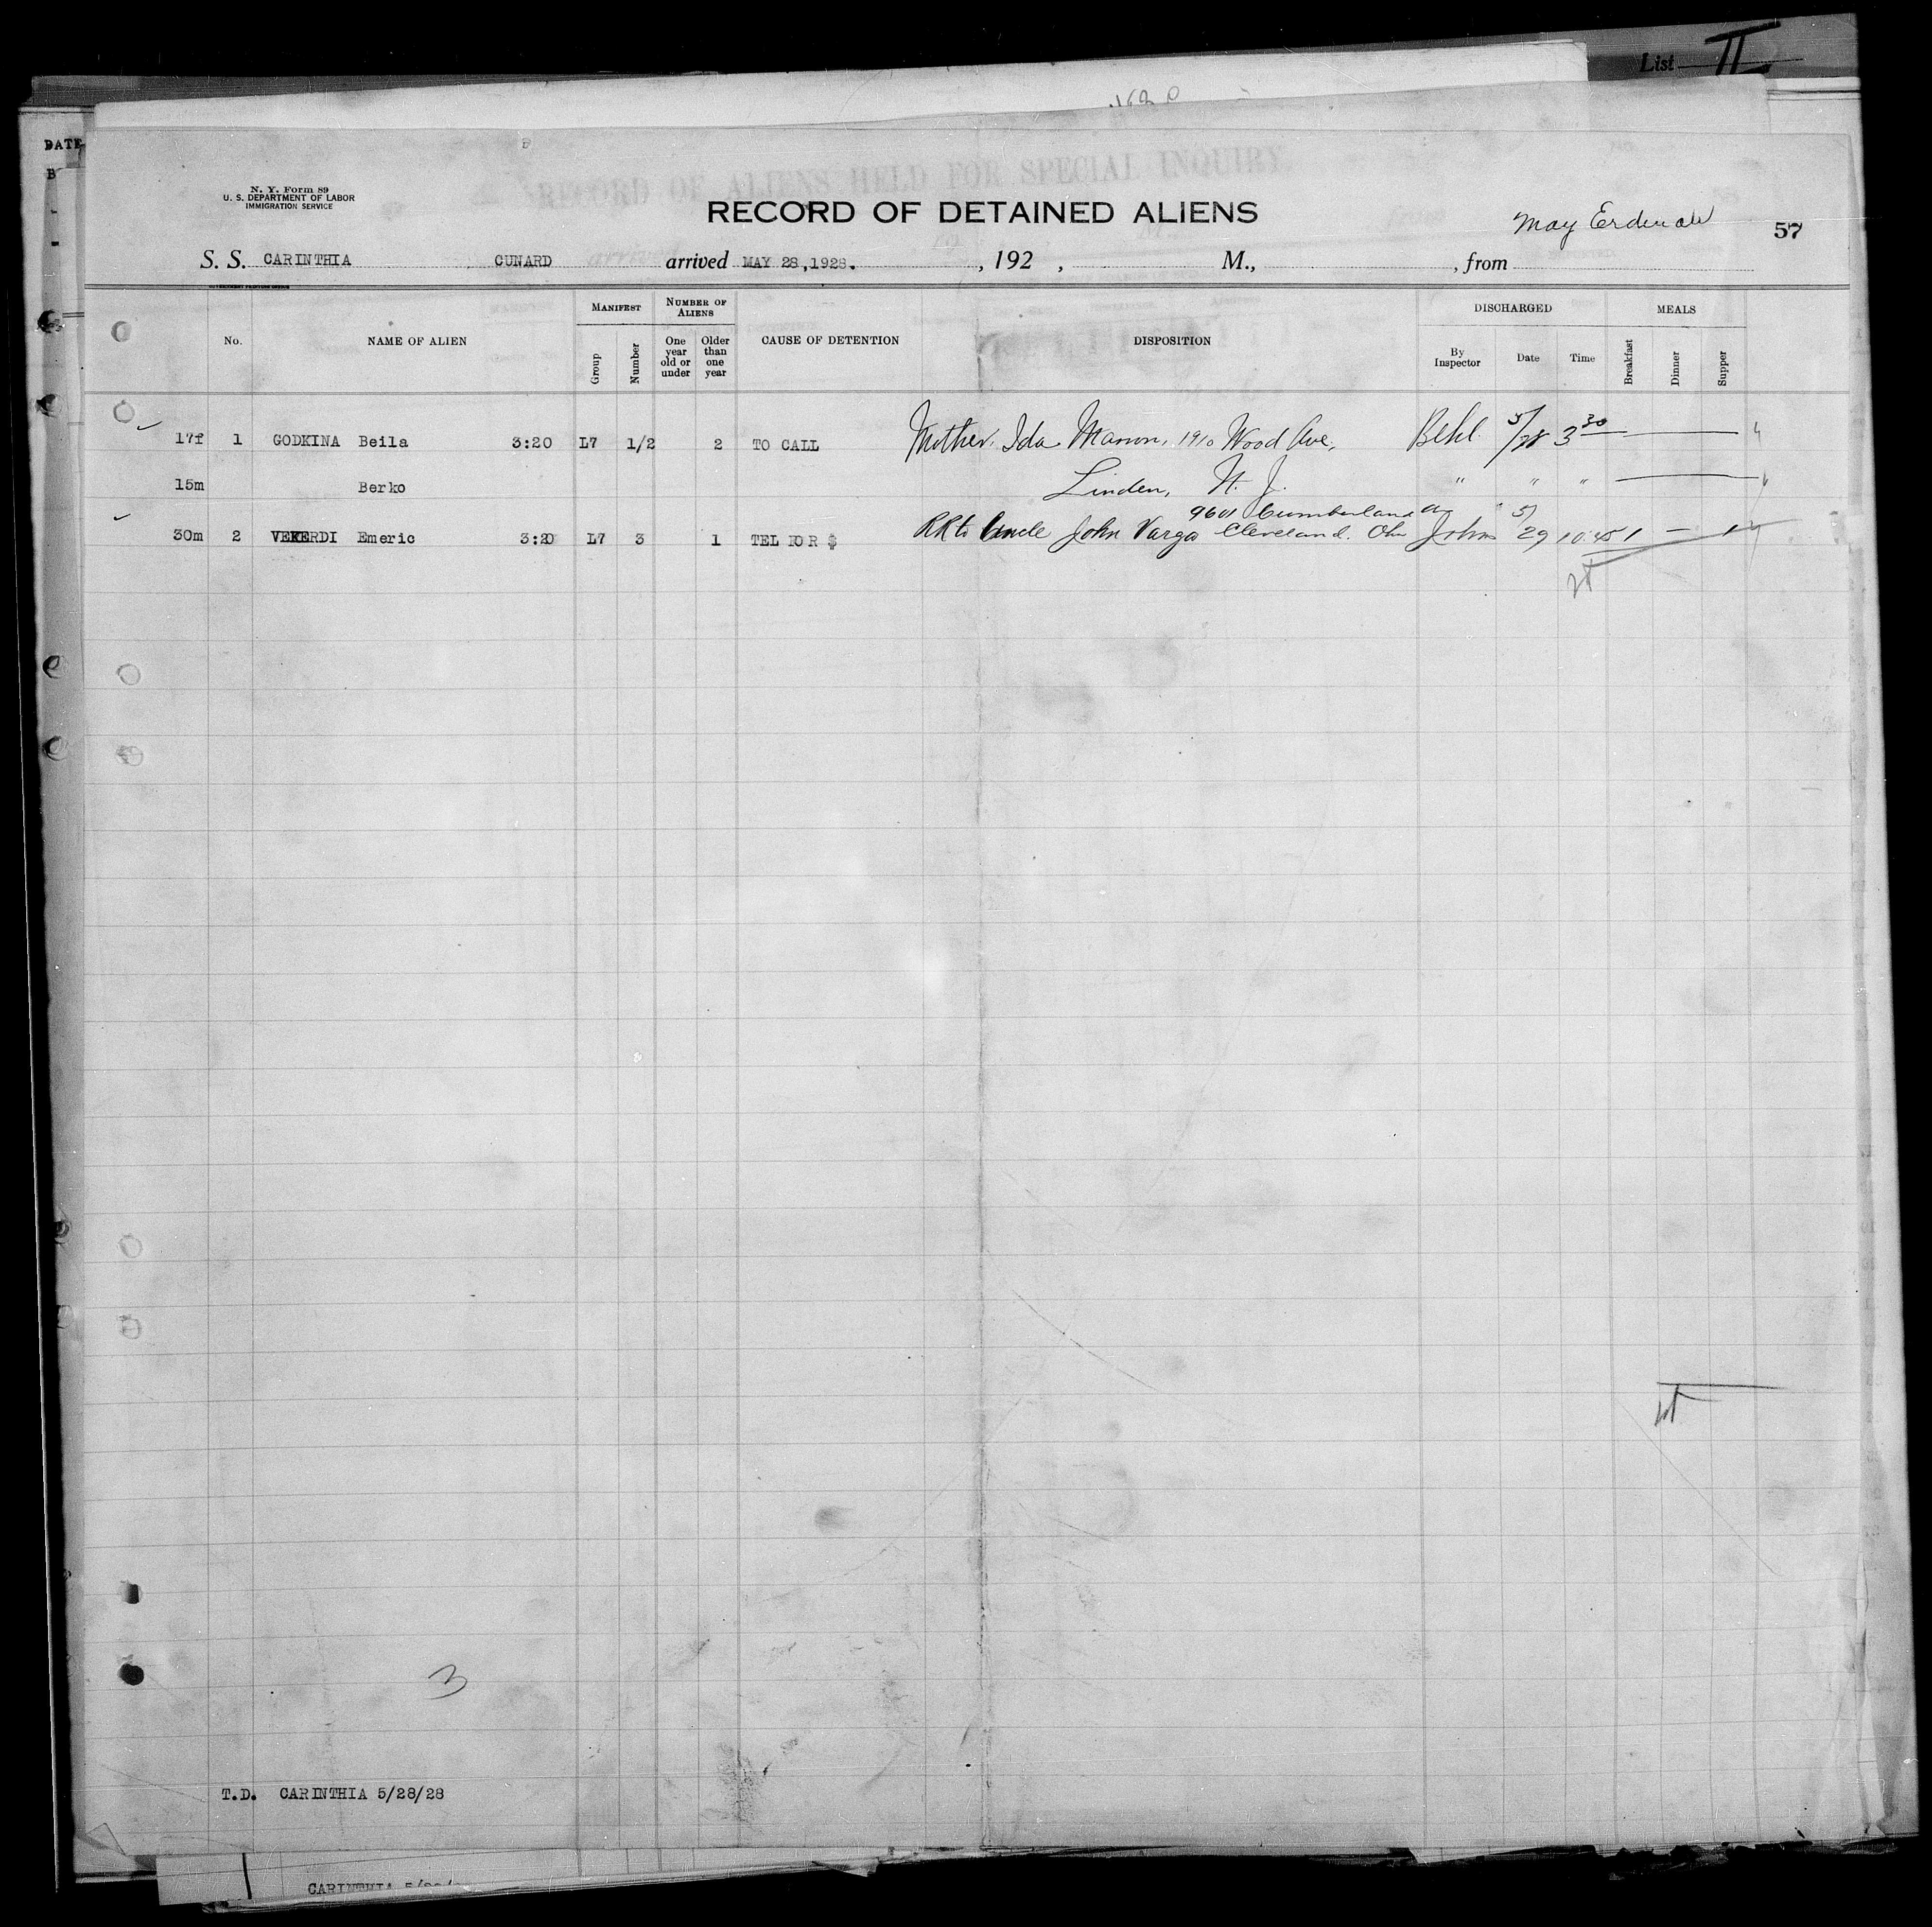 List II
DATE
B
N. Y. Form 89
U. S. DEPARTMENT OF LABOR
IMMIGRATION SERVICE
RECORD OF ALIENS HELD FOR SPECIAL INQUIRY.
RECORD OF DETAINED ALIENS
May 57
S. S. CARINTHIA CUNARD arrived MAY 28, 1928. , 192 , M., , from
No. NAME OF ALIEN MANIFEST Group Number NUMBER OF ALIENS One year old or under Older than one year CAUSE OF DETENTION DISPOSITION DISCHARGED By Inspector Date Time MEALS Breakfast Dinner Supper
17f 1 GODKINA Beila 3:20 L7 1/2 2 TO CALL Mother, Ida 1910 Wood Ave, 5/28 3 30
15m Berko Linden, N. J. " " "
9601 Cumberland Av
30m 2 VEKERDI Emeric 3:20 L7 3 1 TEL FOR $ RR to Uncle John Varga Cleveland. Ohio Johns 5/29 10:45 1 — 1
3
T.D. CARINTHIA 5/28/28
CARINTHIA